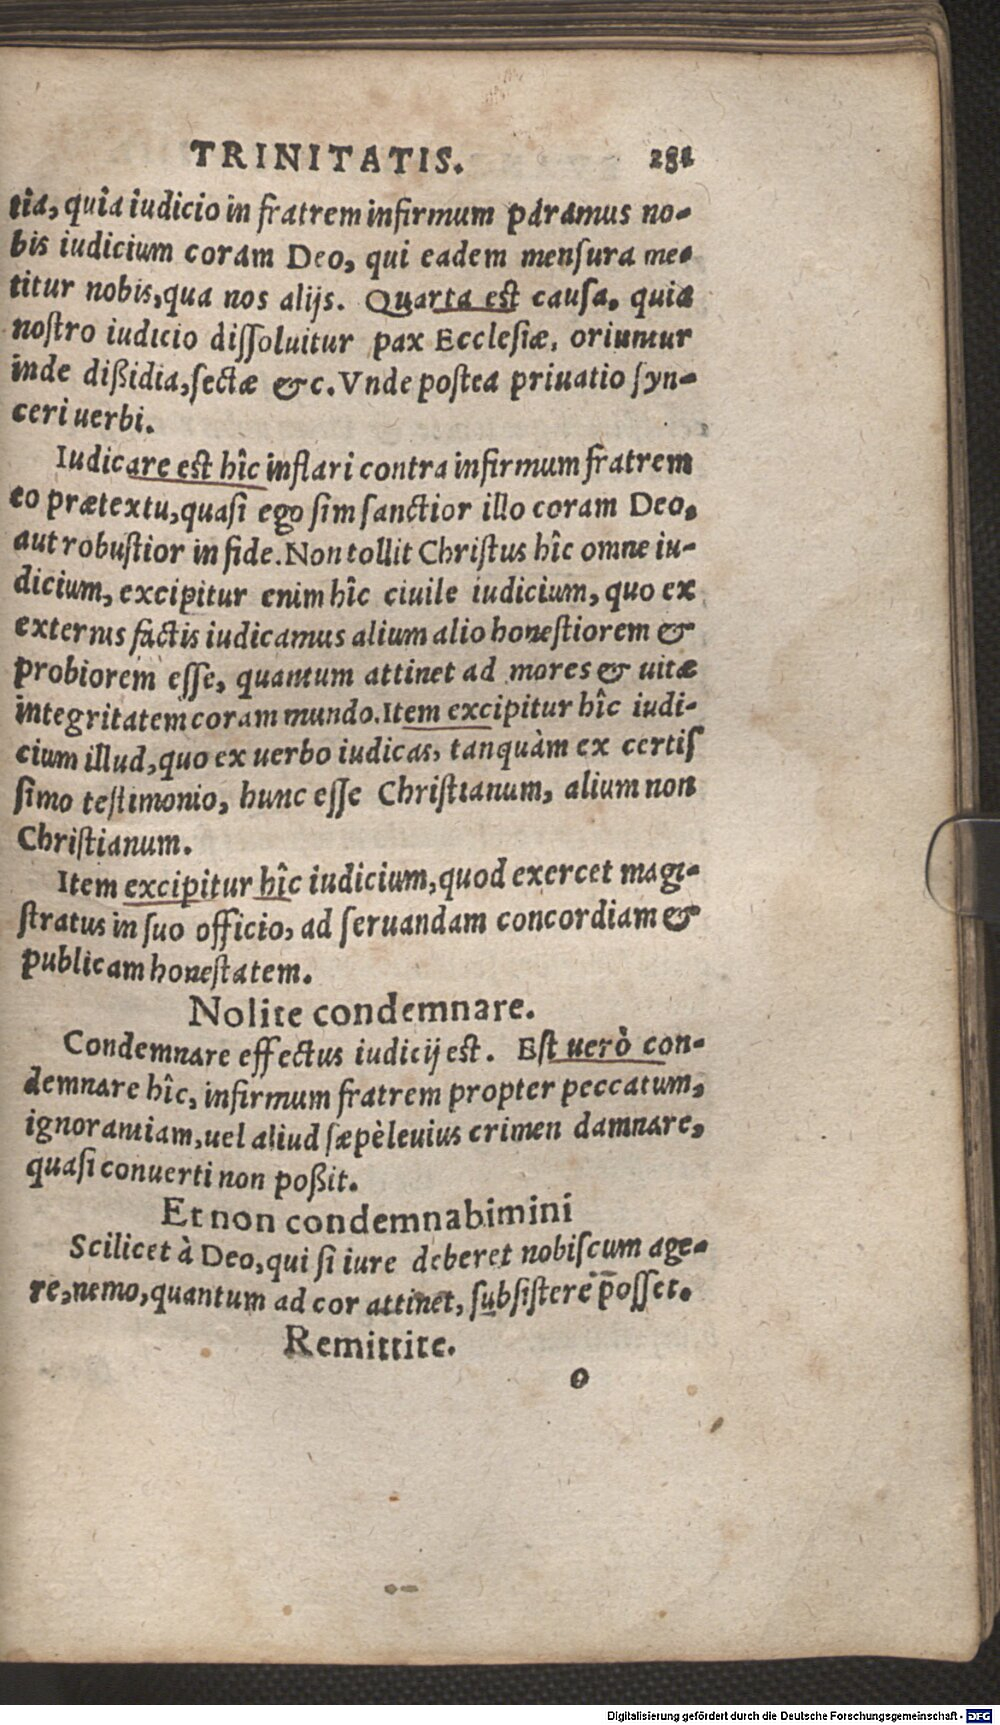 TRINITATIS. 281
tia, quia iudicio in fratrem infirmum paramus no-
bis iudicium coram Deo, qui eadem mensura me-
titur nobis, qua nos alijs. Quarta est causa, quia
nostro iudicio dissoluitur pax Ecclesiæ, oriuntur
inde dißidia, sectæ &c. Vnde postea priuatio syn-
ceri uerbi.
Iudicare est hîc inflari contra infirmum fratrem
eo prætextu, quasi ego sim sanctior illo coram Deo,
aut robustior in fide. Non tollit Christus hîc omne iu-
dicium, excipitur enim hîc ciuile iudicium, quo ex
externis factis iudicamus alium alio honestiorem &
probiorem esse, quantum attinet ad mores & uitæ
integritatem coram mundo. Item excipitur hîc iudi-
cium illud, quo ex uerbo iudicas, tanquàm ex certis
simo testimonio, hunc esse Christianum, alium non
Christianum.
Item excipitur hîc iudicium, quod exercet magi-
stratus in suo officio, ad seruandam concordiam &
publicam honestatem.
Nolite condemnare.
Condemnare effectus iudicij est. Est uerò con-
demnare hîc, infirmum fratrem propter peccatum,
ignorantiam, uel aliud sæpè leuius crimen damnare,
quasi conuerti non poßit.
Et non condemnabimini
Scilicet à Deo, qui si iure deberet nobiscum age-
re, nemo, quantum ad cor attinet, subsistere posset.
Remittite.
o
Digitalisierung gefördert durch die Deutsche Forschungsgemeinschaft - DFG